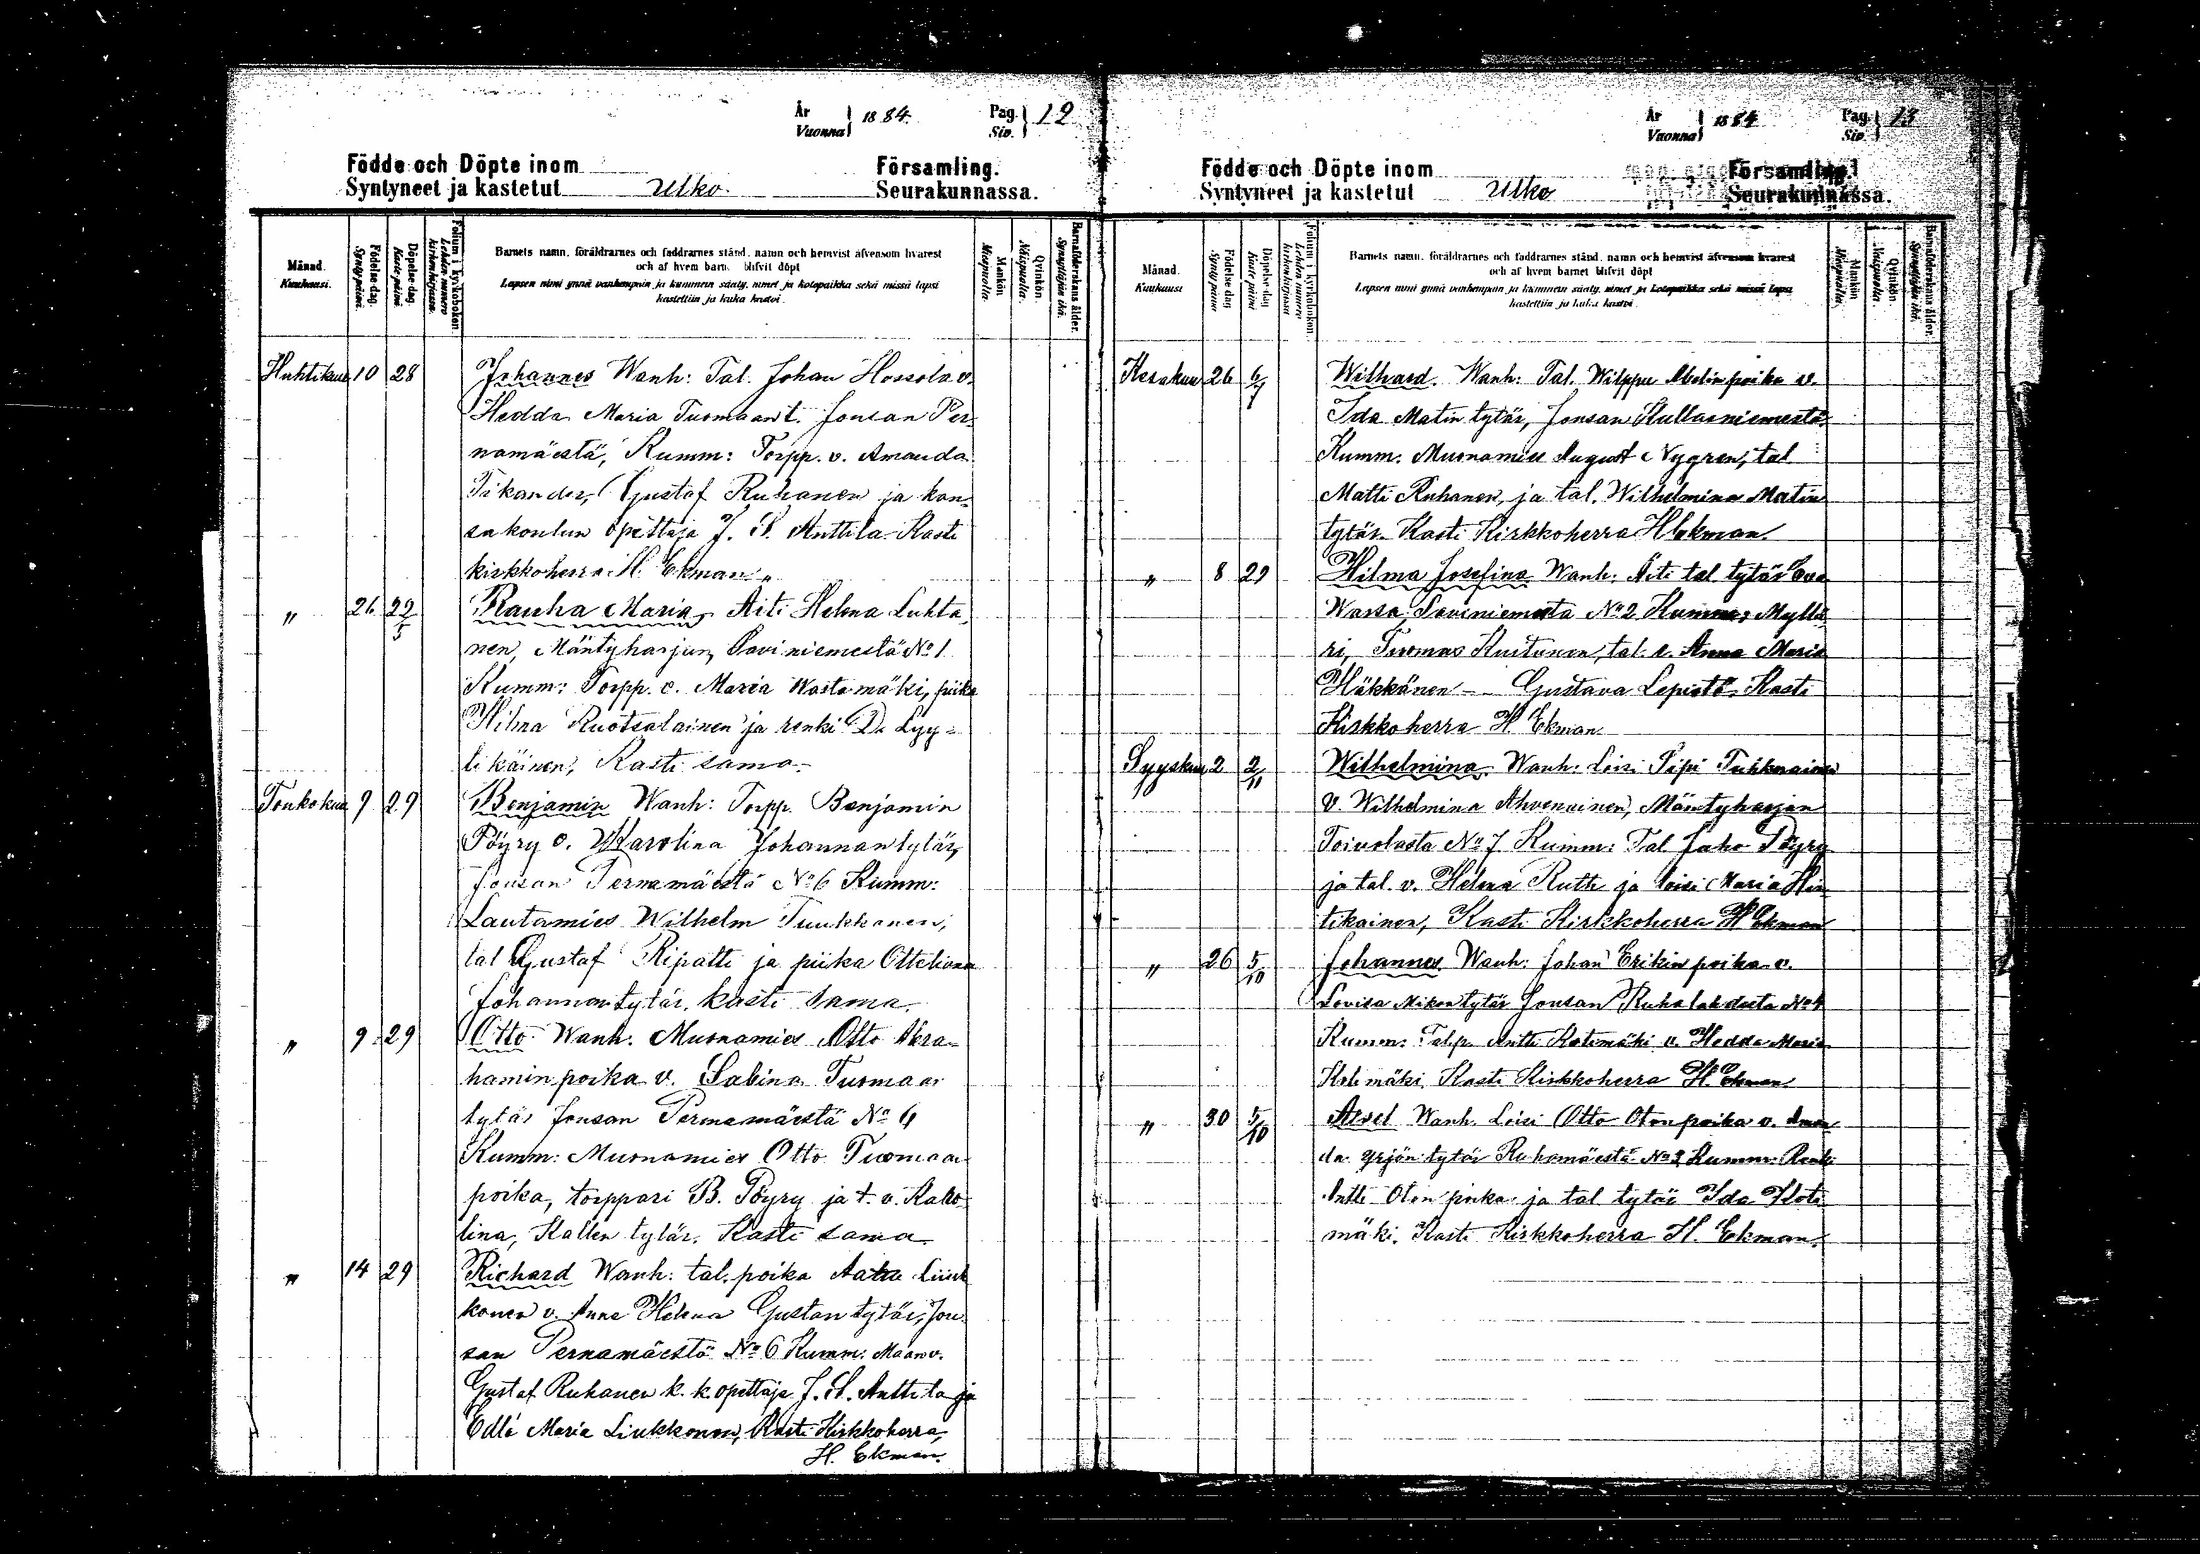 År
Vuonna 1884.
Pag.
Siv. 12
Födde och Döpte inom Församling.
Syntyneet ja kastetut Ulko Seurakunnassa.
Månad.
Kuukausi.
Födelse-dag.
Syntypäivä.
Döpelse-dag.
Kaste päivä
Folium i kyrkoboken.
Lehden numero kirkonkirjassa.
Barnets namn, föräldrarnes och faddrarnes stånd, namn och hemvist äfvensom hvarest
och af hvem barn. blifvit döpt
Lapsen nimi ynnä vanhempain ja kummein sääty, nimet ja kotopaikka sekä missä lapsi
kastettiin ja kuka kastoi.
Mankön
Miespuolia.
Qvinkön.
Naispuolia.
Barnaföderskans ålder.
Synnyttäjän ikä.
Huhtikuu 10 28 Johannes Wanh: Tal. Johan Hossola v.
Hedda Maria Tuomaant. Jousan Per-
namäestä, Kumm: Torpp. v. Amanda
Tikander, Gustaf Ruhanen ja kan-
sakoulun opettaja J. A. Anttila Kasti
kirkkoherra H. Ekman
" 26 22/5 Rauha Maria, Äiti Helena Luhta
nen, Mäntyharjun, Saviniemestä No 1
Kumm: Torpp. v. Maria Wastamäki, piika
Hilma Ruotsalainen ja renki D. Lyy-
tikäinen, Kasti sama.
Toukokuu 9 29 Benjamin Wanh: Torpp. Benjamin
Pöyry v. Karolina Johannantytär,
Jousan Pernamäestä No 6 Kumm:
Lautamies Wilhelm Tuukkanen,
tal Gustaf Ripatti ja piika Otteliana
Johannantytär, kasti sama.
" 9 29 Otto Wanh. Muonamies Otto Abra-
hamin poika v. Sabina Tuomaan
tytär Jousan Pernamäestä No 6
Kumm: Muonamies Otto Tuomaan
poika, torppari B. Pöyry ja t. v. Karo-
lina, Kallen tytär. Kasti sama
" 14 29 Richard Wanh: tal. poika Aatu Liuk
konen v. Anna Helena Gustan tytär, Jou-
san Pernamäestä No 6 Kumm: Maanv.
Gustaf Ruhanen k. k. opettaja J. A. Anttila ja
Edla Maria Liukkonen, Kasti Kirkkoherra,
H. Ekman.
År
Vuonna 1884
Pag.
Siv. 13
Födde och Döpte inom Församling.
Syntyneet ja kastetut Ulko Seurakunnassa.
Månad.
Kuukausi
Födelse-dag
Syntypäivä
Döpelse-dag
Kaste päivä
Folium i kyrkoboken.
Lehden numero kirkonkirjassa
Barnets namn, föräldrarnes och faddrarnes stånd, namn och hemvist äfvensom hvarest
och af hvem barnet blifvit döpt
Lapsen nimi ynnä vanhempain ja kummein sääty, nimet ja kotopaikka sekä missä lapsi
kastettiin ja kuka kastoi.
Mankön
Miespuolia.
Qvinkön.
Naispuolia.
Barnaföderskans ålder.
Synnyttäjän ikä.
Kesäkuu 26 6/7 Wilhard. Wanh: Tal. Wilppu Abelin poika v.
Ida Matin tytär, Jousan Kullasniemestä
Kumm. Muonamies August Nygren, tal
Matti Ruhanen, ja tal. Wilhelmina Matin
tytär Kasti Kirkkoherra H Ekman
" 8 29 Hilma Josefina Wanh: Äiti tal tytär Eva
Wassa, Saviniemestä No 2 Kumm: Myllä
ri, Tuomas Kuitunen, tal. v. Anna Maria
Häkkänen — Gustava Lepistö Kasti
Kirkkoherra H Ekman
Syyskuu 2 2/11 Wilhelmina Wanh: Loisi Pipi Tukkuainen
v. Wilhelmina Ahvenainen, Mäntyharjun
Toivolasta No 7 Kumm: Tal Juho Pöyry
ja tal. v. Helena Ruth ja loisi Maria Hin
tikainen, Kasti Kirkkoherra H Ekman
" 26 5/10 Johannes Wanh: Johan Erikin poika v.
Lovisa Mikon tytär Jousan Ruhalahdesta No 4
Kumm: Talp. Antti Kotimäki v. Hedda Maria
Kotimäki, Kasti Kirkkoherra H. Ekman
" 30 5/10 Aksel Wanh. Loisi Otto Oton poika v. Aman
da Yrjön tytär Ruhamäestä No 2 Kumm: Renki
Antti Oton poika ja tal tytär Ida Koti
mäki. Kasti Kirkkoherra H. Ekman.